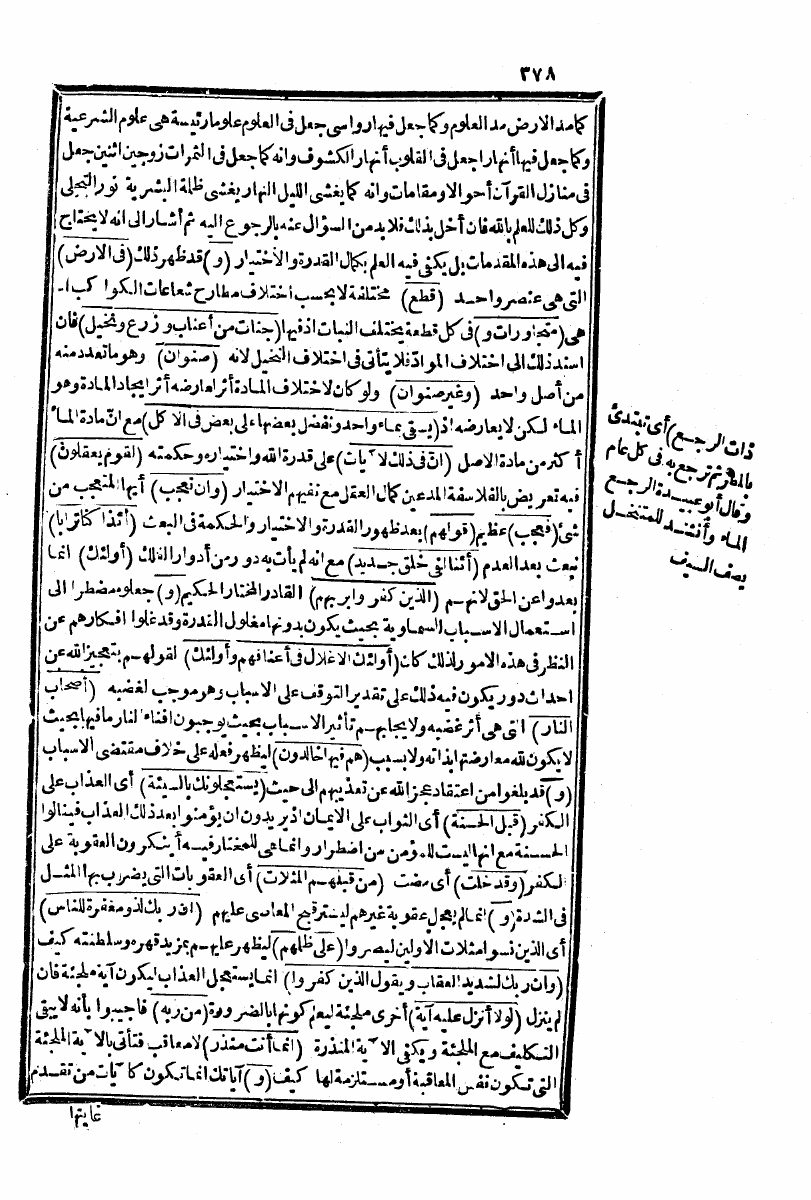 ٣٧٨
كما مد الارض مد العلوم وكما جعل فيها رواسى جعل فى العلوم علوما رئيسة هى علوم الشرعية
وكما جعل فيها أنهارا جعل فى القلوب أنهار الكشوف وانه كما جعل فى الثمرات زوجين اثنين جعل
فى منازل القرآن أحوالا ومقامات وانه كما يغشى الليل النهار يغشى ظلمة البشرية نور التجلى
وكل ذلك للعلم بالله فان أخل بذلك فلابد من السؤال عنه بالرجوع اليه ثم أشار الى انه لا يحتاج
فيه الى هذه المقدمات بل يكفى فيه العلم بكمال القدرة والاختيار (و) قد ظهر ذلك (فى الارض)
التى هى عنصر واحد (قطع) مختلفة لا بحسب اختلاف مطارح شعاعات الكواكب اذ
هى (متجاورات و) فى كل قطعة يختلف النبات اذ فيها (جنات من أعناب وزرع ونخيل) فان
استند ذلك الى اختلاف المواد فلا يتأتى فى اختلاف النخيل لانه (صنوان) وهو ما تعدد منه
من أصل واحد (وغير صنوان) ولو كان لاختلاف المادة أثر لعارضه أثر ايجاد المادة وهو
الماء لكن لا يعارضه اذ (يسقى بماء واحد ونفضل بعضها على بعض فى الاكل) مع ان مادة الماء
أكثر من مادة الاصل (ان فى ذلك لآيات) على قدرة الله واختياره وحكمته (لقوم يعقلون)
فيه تعريض بالفلاسفة المدعين كمال العقل مع نفيهم الاختيار (وان تعجب) أيها المتعجب من
شئ (فعجب) عظيم (قولهم) بعد ظهور القدرة والاختيار والحكمة فى البعث (أئذا كنا ترابا)
نبعث بعد العدم (أئنا لفى خلق جديد) مع انه لم يأت به دور من أدوار الفلك (أولئك) انما
بعدوا عن الحق لانهم (الذين كفروا بربهم) القادر المختار الحكيم (و) جعلوه مضطرا الى
استعمال الاسباب السماوية بحيث يكون بدونها مغلول القدرة وقد غلوا افكارهم عن
النظر فى هذه الامور لذلك كان (أولئك الاغلال فى أعناقهم وأولئك) لقولهم بتعجيز الله عن
احداث دور يكون فيه ذلك على تقدير التوقف على الاسباب وهو موجب لغضبه (أصحاب
النار) التى هى أثر غضبه ولايجابهم تأثير الاسباب بحيث يوجبون افناء النار ما فيها بحيث
لا يكون لله معارضتها بذاته ولا بسبب (هم فيها خالدون) ليظهر فعله على خلاف مقتضى الاسباب
(و) قد بلغوا من اعتقاد عجز الله عن تعذيبهم الى حيث (يستعجلونك بالسيئة) أى العذاب على
الكفر (قبل الحسنة) أى الثواب على الايمان اذ يريدون ان يؤمنوا بعد ذلك العذاب فينالوا
الحسنة مع انها ليست للمؤمن من اضطرار وانما هى للمختار فيه أينكرون العقوبة على
الكفر (وقد خلت) أى مضت (من قبلهم المثلات) أى العقوبات التى يضرب بها المثل
فى الشدة (و) انما لم يعجل عقوبة غيرهم ليستر قبح المعاصى عليهم (ان ربك لذو مغفرة للناس)
أى الذين نسوا مثلات الاولين ليصروا (على ظلمهم) ليظهر عليهم بمزيد قهره وسلطنته كيف
(وان ربك لشديد العقاب ويقول الذين كفروا) انما يستعجل العذاب ليكون آية ملجئة فان
لم ينزل (لولا أنزل عليه آية) أخرى ملجئة ليعلم كونها بالضرورة (من ربه) فاجيبوا بأنه لا يبقى
التكليف مع الملجئة ويكفى الآية المنذرة (انما أنت منذر) لا معاقب فتأتى بالآية الملجئة
التى تكون نفس المعاقبة أو مستلزمة لها كيف (و) آياتك انما تكون كآيات من تقدم
غايتها
ذات الرجع) أى تبتدئ
بالمطر ثم ترجع به فى كل عام
وقال أبو عبيدة الرجع
الماء وأنشد للمتنخل
يصف السيف